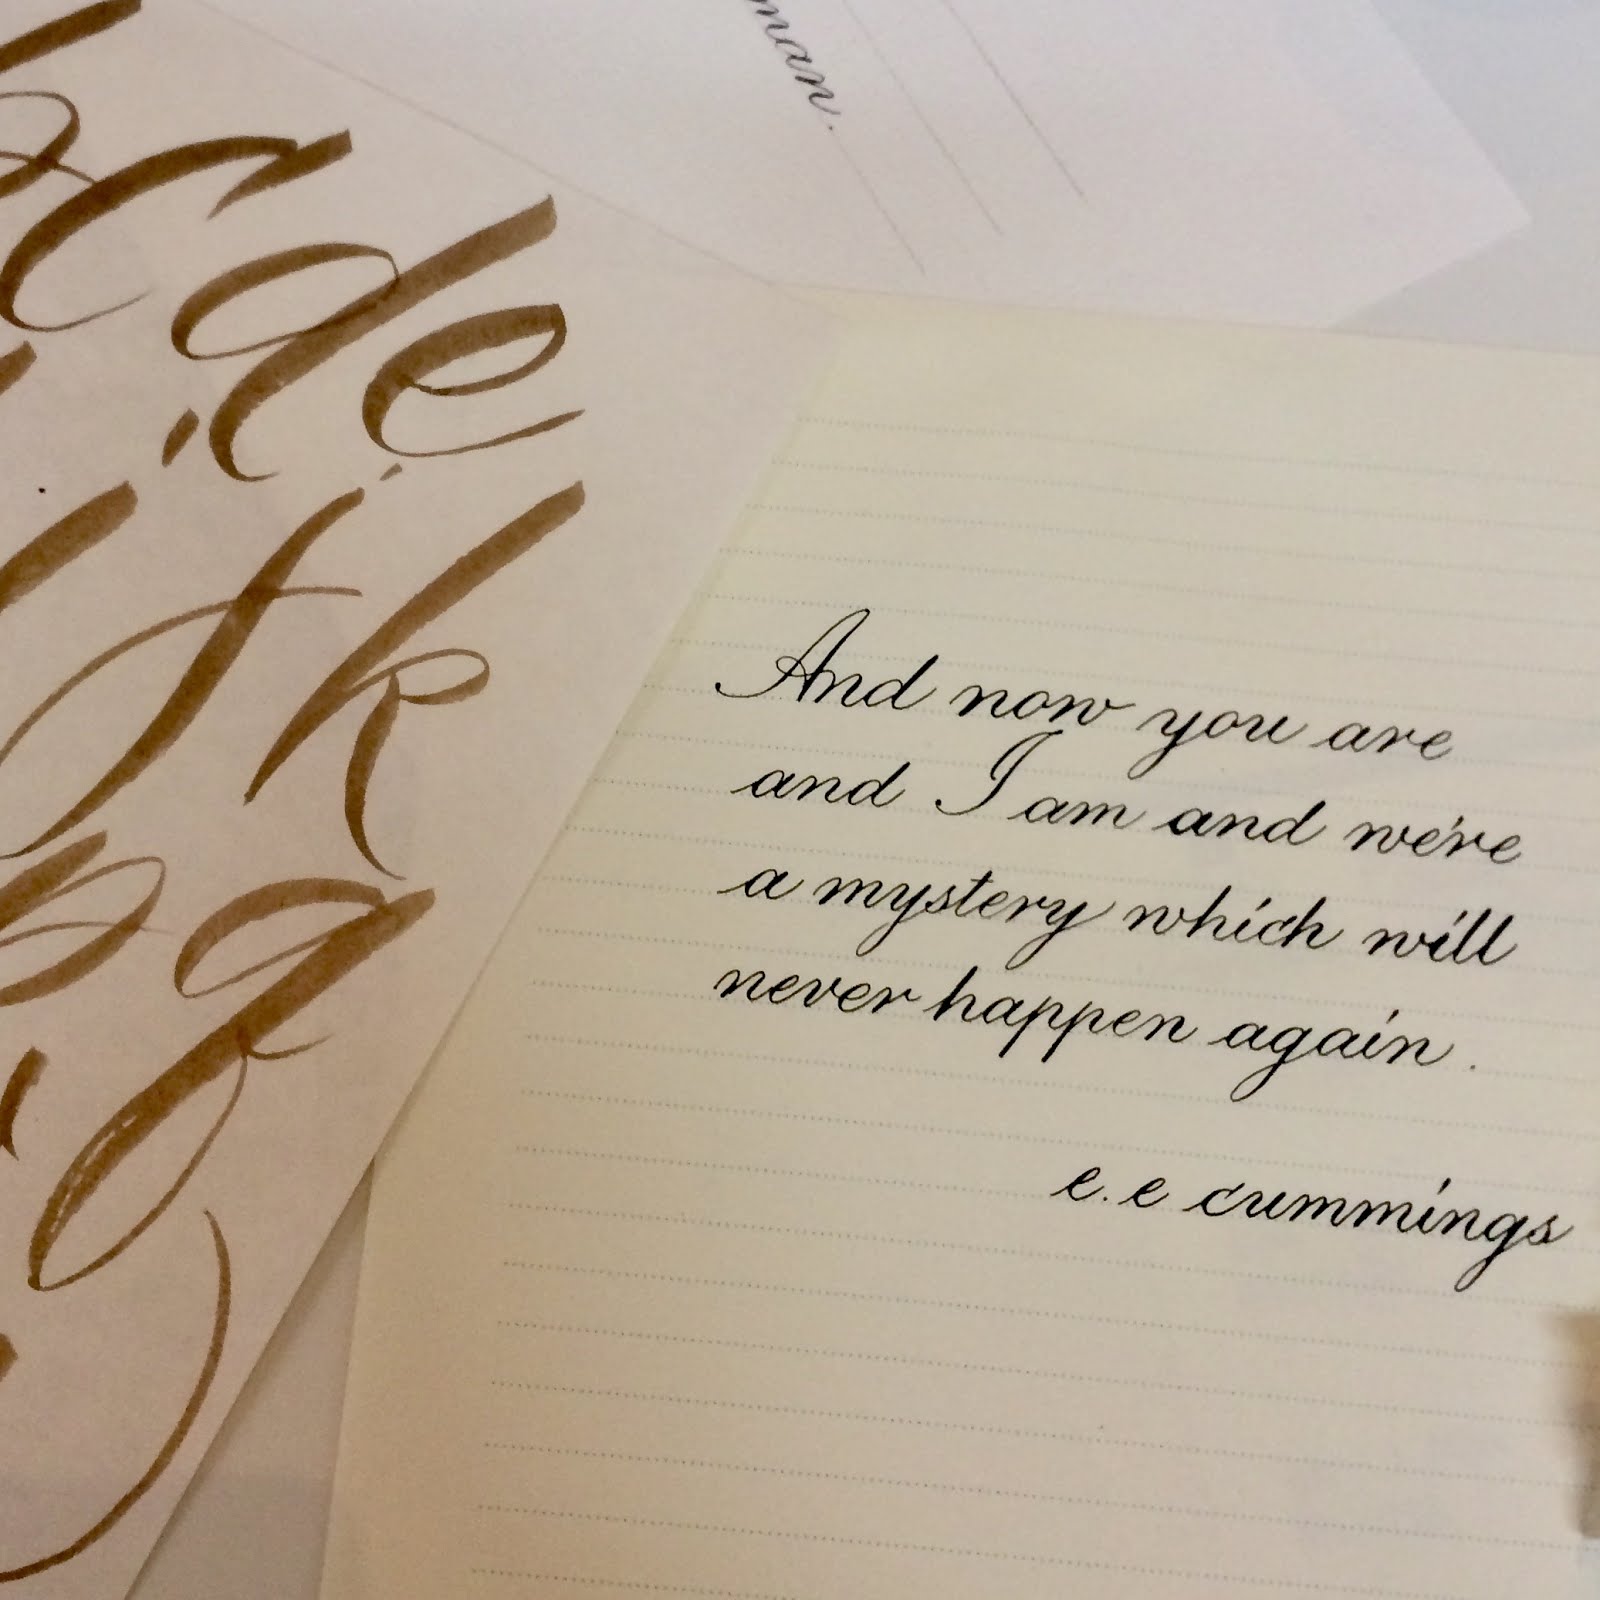 man.
c d e
j k
p q
And now you are
and I am and we're
a mystery which will
never happen again.
e. e cummings